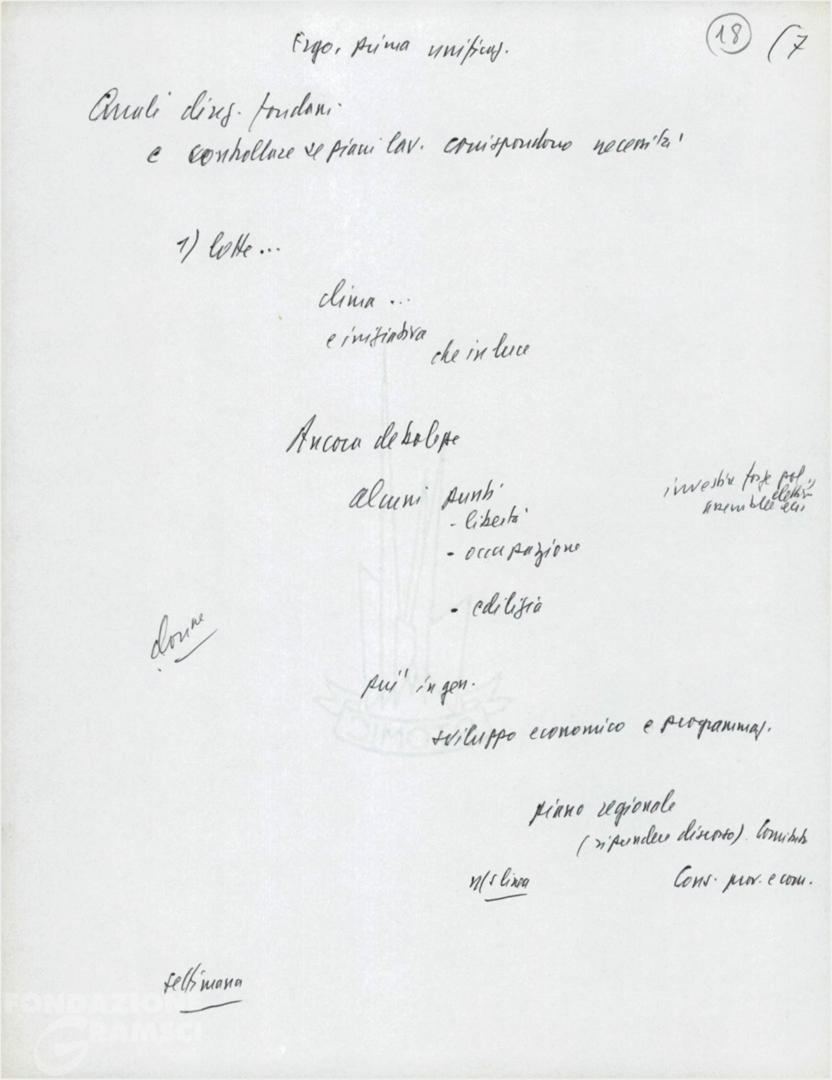 Ergo, prima unificaz.
18
(7
Quali diseg. fondam.
e controllare se piani lav. corrispondono necessità
1) lotte...
clima ...
e iniziativa
che in luce
Ancora debolezze
alcuni punti
- libertà
- occupazione
- edilizia
investire forze pol.
assemblee elettive
donne
più in gen.
sviluppo economico e programmaz.
piano regionale
(riprendere discorso). Comitato
n/s linea
Cons. prov. e com.
settimana
FONDAZIONE
GRAMSCI